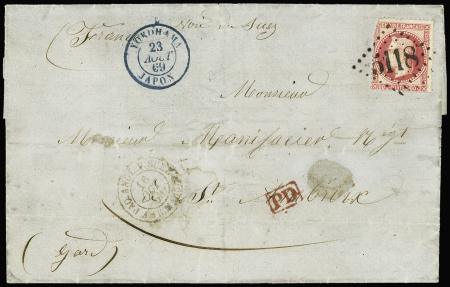 (France voie de Suez
YOKOHAMA
23
AOUT
69
JAPON
5118
Monsieur
Monsieur Manifacier Négt
PD
St Ambroix
(Gard)